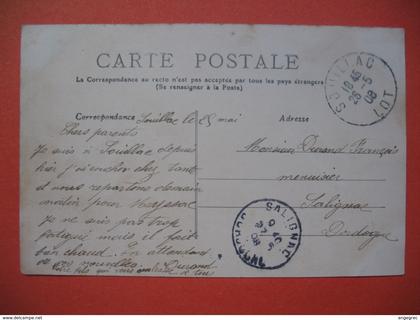 CARTE POSTALE
La Correspondance au recto n'est pas acceptée par tous les pays étrangers
(Se renseigner à la Poste)
Correspondance
Adresse
Souillac le 25 mai
Chers parents
Je suis à Souillac depuis
hier j'ai couché chez Tant
et nous repartons demain
matin pour
Je ne suis pas trop
fatigué mais il fait
bien chaud. En attendant
de vos nouvelles. Durand
Votre fils qui vous embrasse de
Monsieur Durand François
menuisier
Salignac
Dordogne
SOUILLAC
18 45
26 -5
08
LOT
SALIGNAC
DORDOGNE